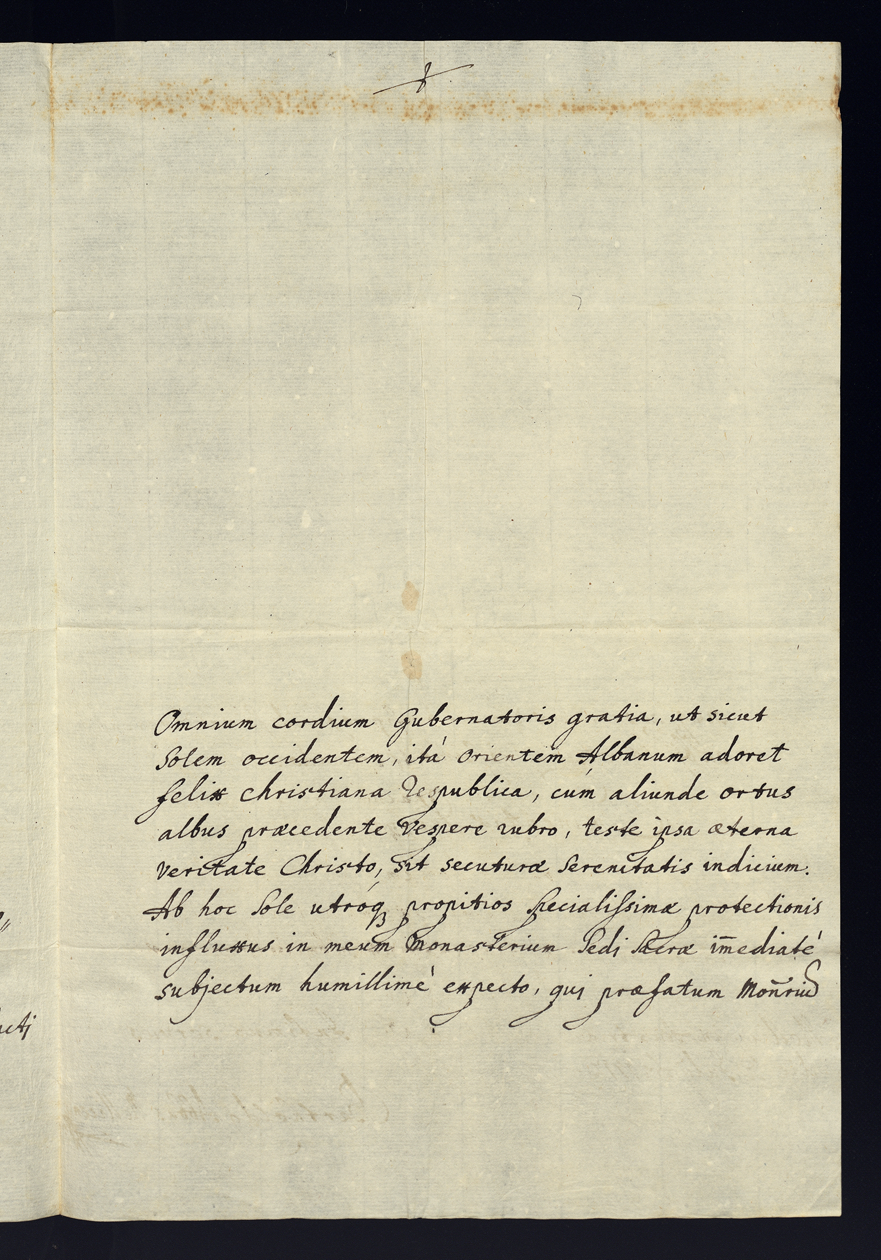 Omnium cordium Gubernatoris gratia, ut sicut
Solem occidentem, itá Orientem Albanum adoret
felix Christiana Respublica, cúm aliunde ortus
albus præcedente Vespere rubro, teste ipsa æterna
veritate Christo, sit secuturæ Serenitatis indicium.
Ab hoc Sole utróq3 propitios specialissimæ protectionis
influxus in meum Monasterium Sedi Sacræ im̄ediaté
subjectum humillimé expecto, qui præfatum